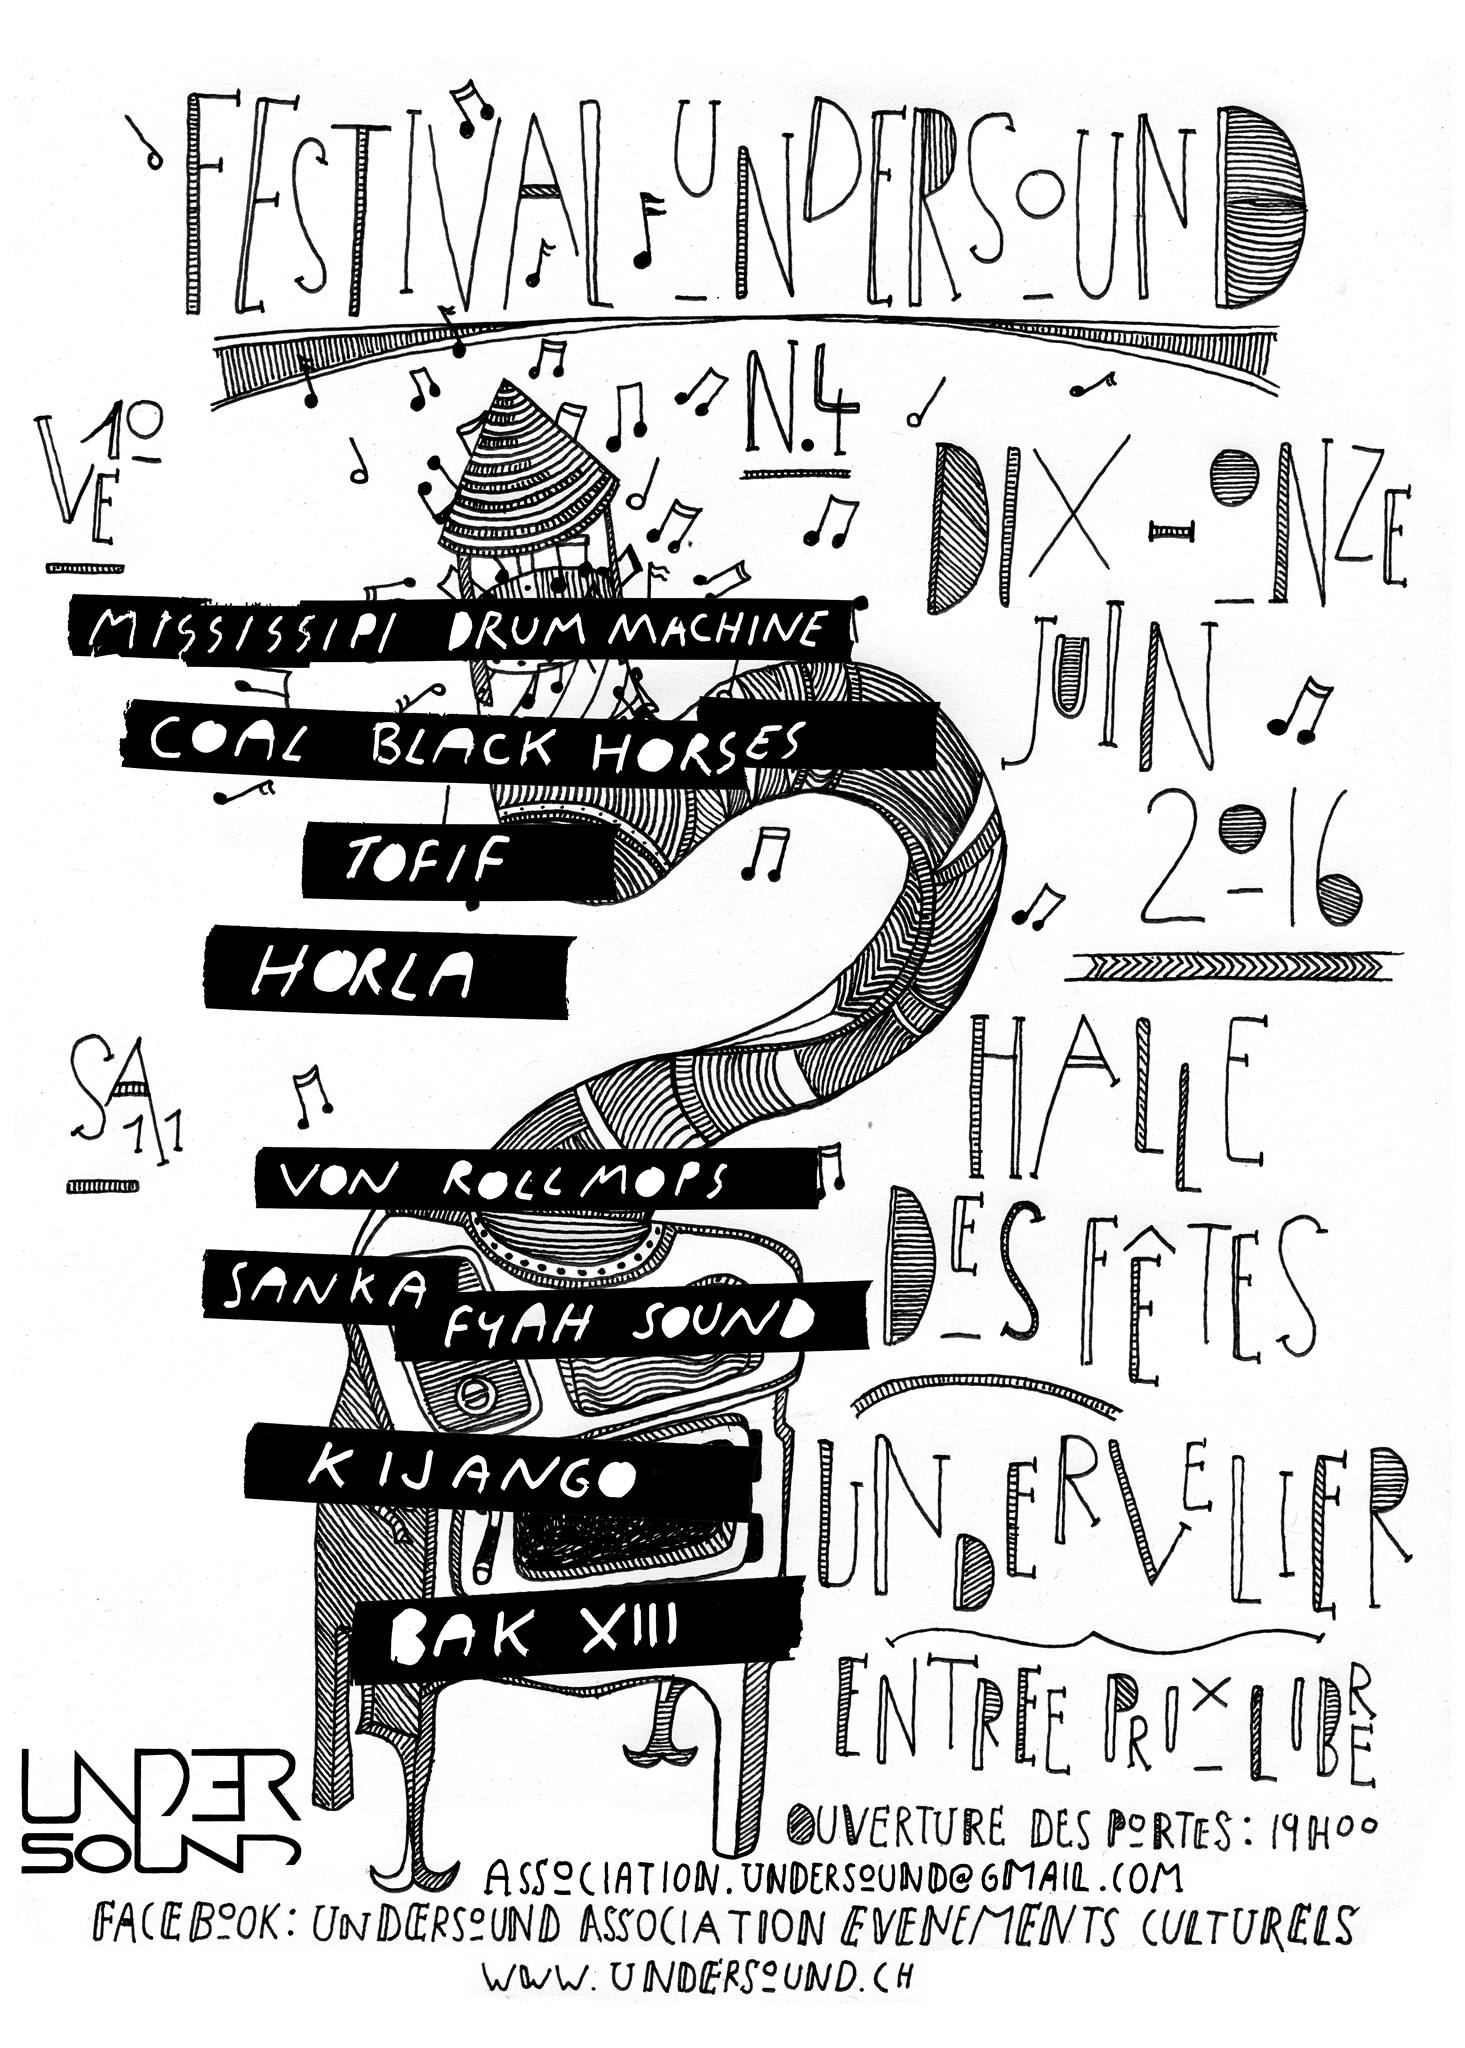 FESTIVAL UNDERSOUND
N.4
VE 10
DIX-ONZE
JUIN
2016
MISSISSIPI DRUM MACHINE
COAL BLACK HORSES
TOFIF
HORLA
SA 11
VON ROLLMOPS
SANKA FYAH SOUND
KIJANGO
BAK XIII
HALLE
DES FÊTES
UNDERVELIER
ENTREE PRIX LIBRE
OUVERTURE DES PORTES: 19H00
UNDER
SOUND
ASSOCIATION.UNDERSOUND@GMAIL.COM
FACEBOOK: UNDERSOUND ASSOCIATION EVENEMENTS CULTURELS
WWW.UNDERSOUND.CH